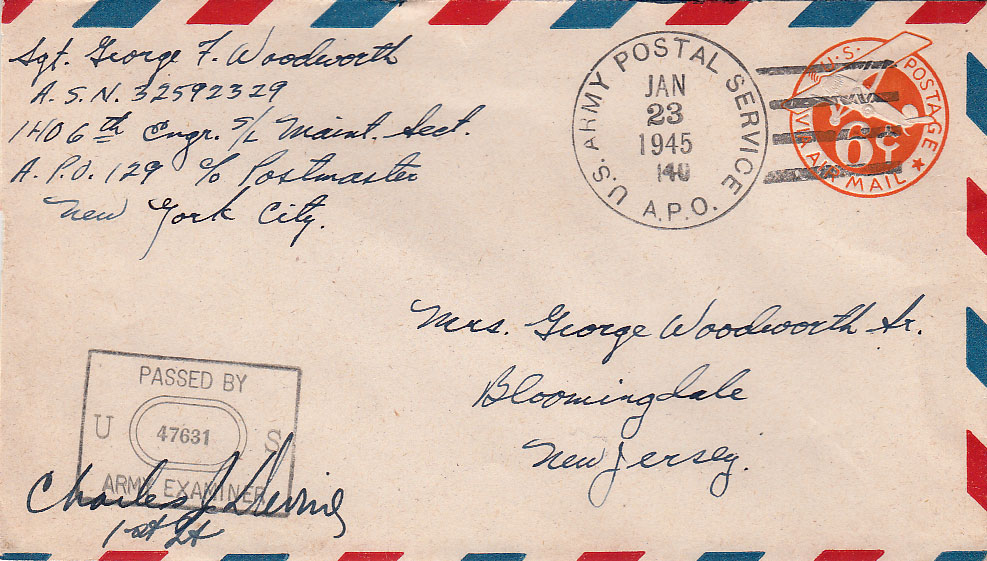 Sgt. George F. Woodworth
A.S.N. 32592329
1406th Engr. S/L Maint. Sect.
A.P.O. 129 c/o Postmaster
New York City.
U.S. ARMY POSTAL SERVICE
JAN
23
1945
140
A.P.O.
U.S. POSTAGE
6¢
VIA AIR MAIL
Mrs. George Woodworth Sr.
Bloomingdale
New Jersey.
PASSED BY
U 47631 S
ARMY EXAMINER
Charles J.
1st Lt